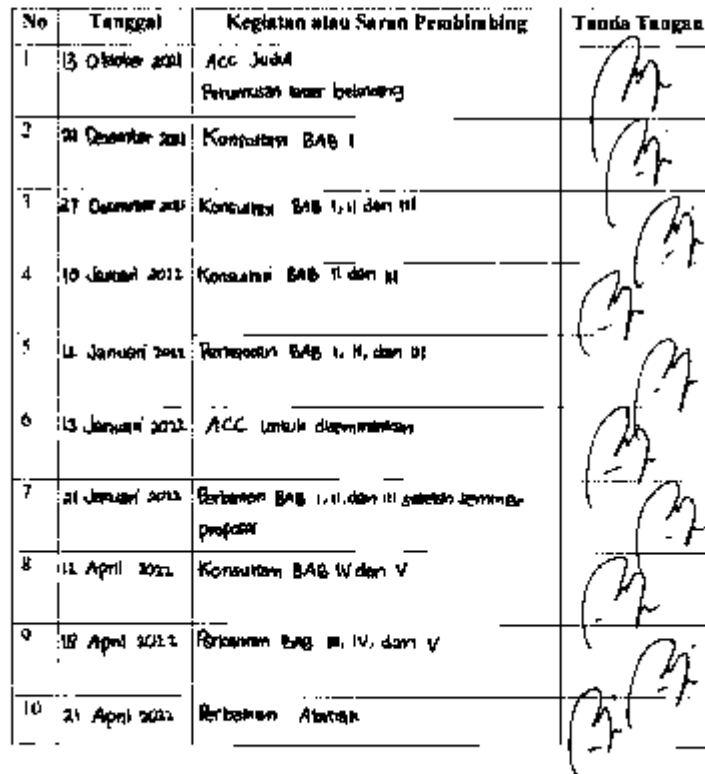 No Tanggal Kegiatan atau Saran Pembimbing Tanda Tangan
1 13 Oktober 2021 Acc Judul
Perumusan latar belakang
2 Desember 2021 Konsultasi BAB I
3 27 Desember 2021 Konsultasi BAB I, II dan III
4 10 Januari 2022 Konsultasi BAB II dan III
5 Januari 2022 Perbaikan BAB I, II, dan III
6 13 Januari 2022 ACC untuk diseminarkan
7 21 Januari 2022 Perbaikan BAB I, II, dan III setelah seminar
proposal
8 12 April 2022 Konsultasi BAB IV dan V
9 18 April 2022 Perbaikan BAB III, IV, dan V
10 21 April 2022 Perbaikan Abstrak